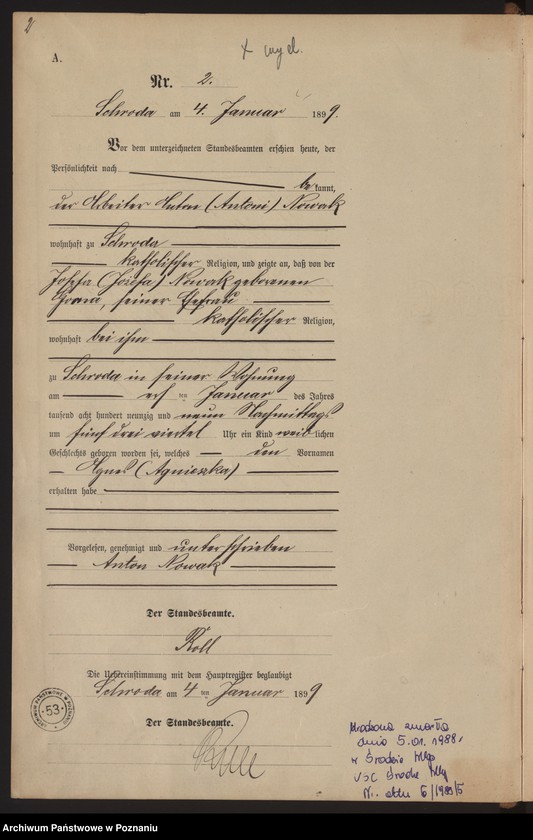 2
A.
Nr. 2.
Schroda am 4. Januar 1899.
Vor dem unterzeichneten Standesbeamten erschien heute, der
Persönlichkeit nach
bekannt,
der Arbeiter Anton (Antoni) Nowak
wohnhaft zu Schroda
katholischer Religion, und zeigte an, daß von der
Josefa (Józefa) Nowak geborenen
seiner Ehefrau
katholischer Religion,
wohnhaft bei ihm
zu Schroda in seiner Wohnung
am ten Januar des Jahres
tausend acht hundert neunzig und neun Nachmittags
um fünf drei viertel Uhr ein Kind weiblichen
Geschlechts geboren worden sei, welches den Vornamen
Agnes (Agnieszka)
erhalten habe
Vorgelesen, genehmigt und unterschrieben
Anton Nowak
Der Standesbeamte.
Roll
Die Uebereinstimmung mit dem Hauptregister beglaubigt
Schroda am 4 ten Januar 1899
Der Standesbeamte.
Roll
ARCHIWUM PAŃSTWOWE W POZNANIU
53
zmarła
dnia 5.01.1988r
w Środzie Wlkp
USC Środa Wlkp
Nr. aktu 6/1988/5
Archiwum Państwowe w Poznaniu